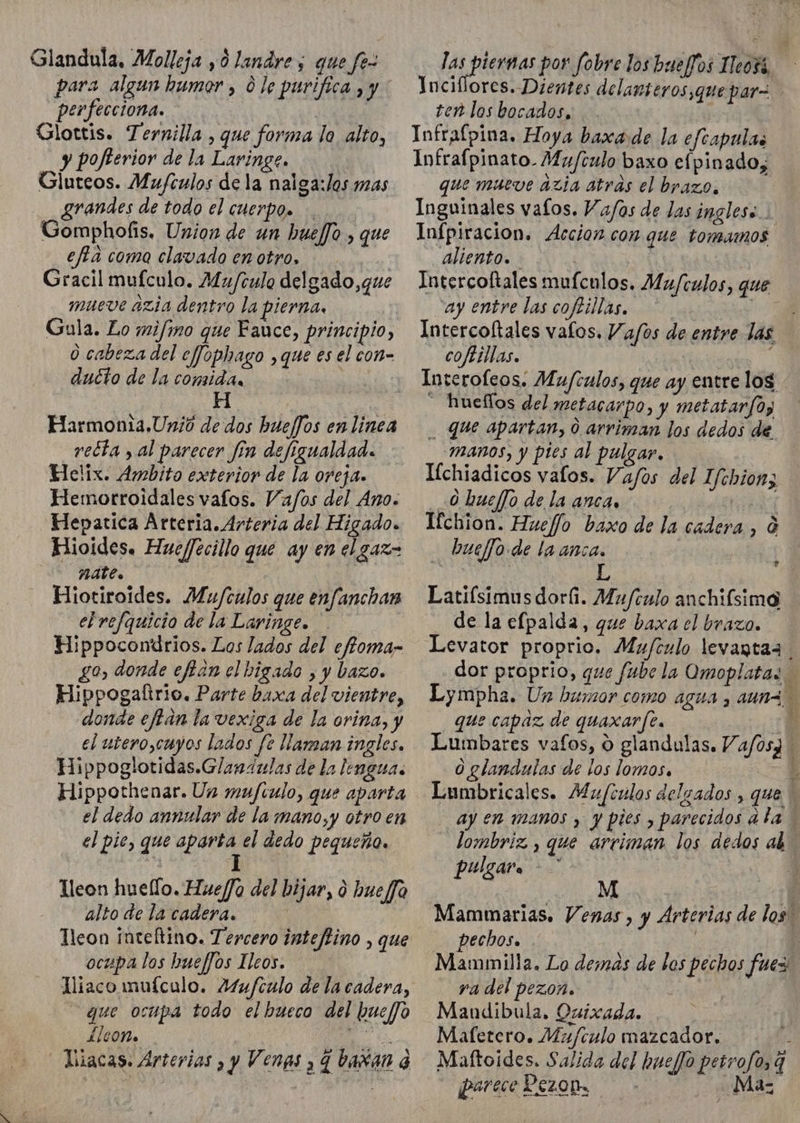 Glandula, Molleja , ò landre ; que fe-
para algun humor , ò le purifica , y
perfecciona.
Glottis. Ternilla , que forma lo alto,
y pofterior de la Laringe.
Gluteos. Mufculos de la nalga:los mas
grandes de todo el cuerpo.
Gomphofis. Union de un hueffo , que
eftà como clavado en otro.
Gracil mufculo. Mufculo delgado,que
mueve àzia dentro la pierna.
Gula. Lo mifmo que Fauce, principio,
ò cabeza del effophago , que es el con-
ducto de la comida.
H
Harmonìa.Uniõ de dos hueffos en linea
recta , al parecer fin defigualdad.
Helix. Ambito exterior de la oreja.
Hemorroidales vafos. Vafos del Ano.
Hepatica Arteria.Arteria del Higado.
Hioides. Hueffecillo que ay en el gaz-
nate.
Hiotiroides. Mufculos que enfanchan
el refquicio de la Laringe.
Hippocondrios. Los lados del eftoma-
go, donde eftàn el higado , y bazo.
Hippogaftrio. Parte baxa del vientre,
donde eftàn la vexiga de la orina, y
el utero,cuyos lados fe llaman ingles.
Hippoglotidas.Glandulas de la lengua.
Hippothenar. Un mufculo, que aparta
el dedo annular de la mano,y otro en
el pie, que aparta el dedo pequeño.
I
Ileon hueffo. Hueffo del hijar, ò hueffo
alto de la cadera.
Ileon inteftino. Tercero inteftino , que
ocupa los hueffos Ileos.
Iliaco mufculo. Mufculo de la cadera,
que ocupa todo el hueco del hueffo
Ileon.
Iliacas. Arterias , y Venas , q̃ baxan à
las piernas por fobre los hueffos Ileos.
Inciffores. Dientes delanteros,que par-
ten los bocados.
Infrafpina. Hoya baxa de la efcapula.
Infrafpinato. Mufculo baxo efpinado,
que mueve àzia atràs el brazo.
Inguinales vafos. Vafos de las ingles.
Infpiracion. Accion con que tomamos
aliento.
Intercoftales mufculos. Mufculos, que
ay entre las coftillas.
Intercoftales vafos. Vafos de entre las
coftillas.
Interofeos. Mufculos, que ay entre los
hueffos del metacarpo, y metatarfo,
que apartan, ò arriman los dedos de
manos, y pies al pulgar.
Ifchiadicos vafos. Vafos del Ifchion,
ò hueffo de la anca.
Ifchion. Hueffo baxo de la cadera , ò
hueffo de la anca.
L
Latifsimus dorfi. Mufculo anchifsimo
de la efpalda, que baxa el brazo.
Levator proprio. Mufculo levanta-
dor proprio, que fube la Omoplata.
Lympha. Un humor como agua , aun-
que capàz de quaxarfe.
Lumbares vafos, ò glandulas. Vafos,
ò glandulas de los lomos.
Lumbricales. Mufculos delgados , que
ay en manos , y pies , parecidos à la
lombriz , que arriman los dedos al
pulgar.
M
Mammarias. Venas , y Arterias de los
pechos.
Mammilla. Lo demàs de los pechos fue-
ra del pezon.
Mandibula. Quixada.
Mafetero. Mufculo mazcador.
Maftoides. Salida del hueffo petrofo, q̃
parece Pezon.
Maz-